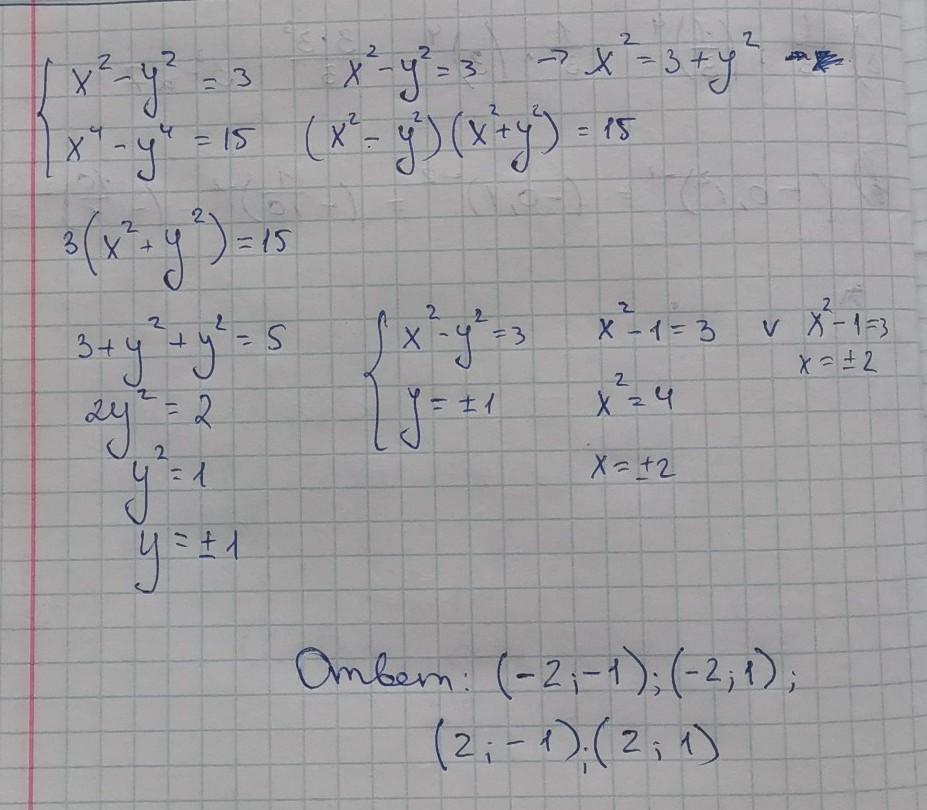 x² - y² = 3 x² - y² = 3 → x² = 3 + y²
x⁴ - y⁴ = 15 (x² - y²)(x² + y²) = 15
3(x² + y²) = 15
3 + y² + y² = 5
2y² = 2
y² = 1
y = ±1
x² - y² = 3
y = ±1
x² - 1 = 3 v x² - 1 = 3
x² = 4 x = ±2
x = ±2
Ответ: (-2; -1); (-2; 1);
(2; -1); (2; 1)